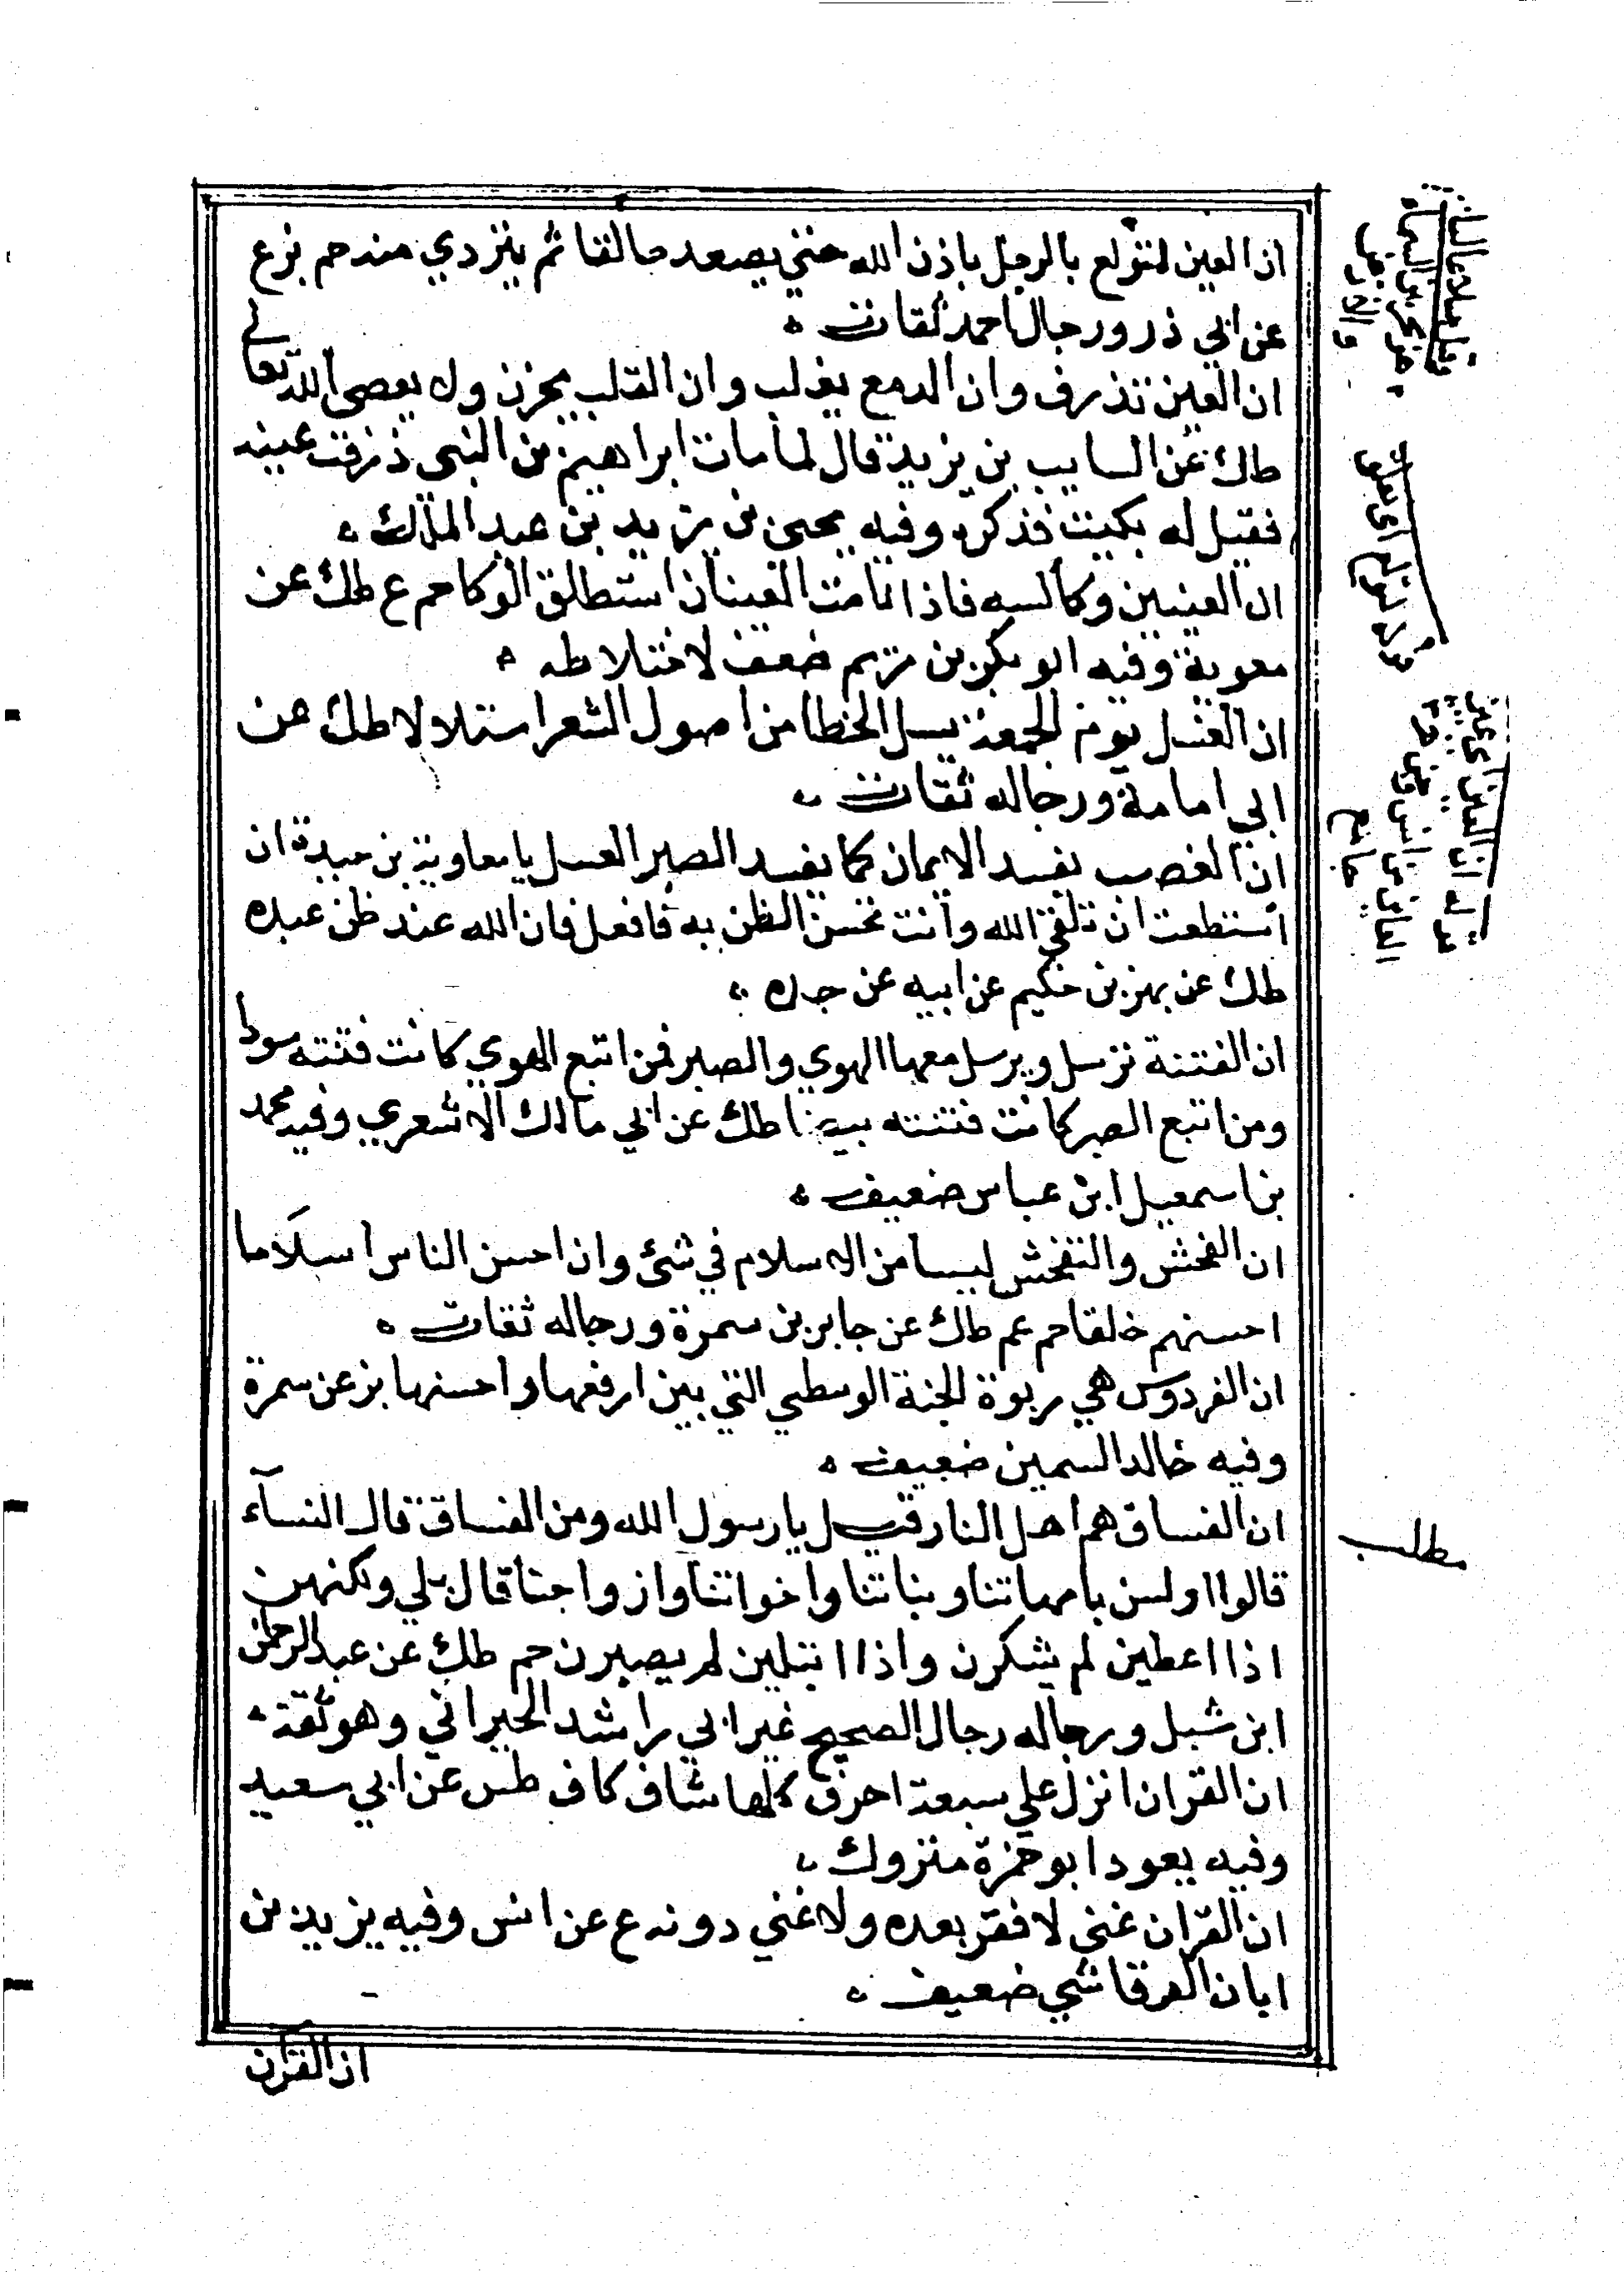 ان العين لتولع بالرجل باذن الله حتي يصعد حالقا ثم يتردي منه حم بز ع
عن ابي ذر ورجال احمد ثقات ه
ان العين تذرف وان الدمع يغلب وان القلب يحزن ولا يعصى الله تعالي
طك عن السايب بن يزيد قال لما مات ابراهيم بن النبى ذرفت عينه
فقيل له بكيت فذكره وفيه يحيى بن يزيد بن عبد الملك ه
ان العينين وكا السه فاذا نامت العينان استطلق الوكا حم ع طك عن
معوية وفيه ابو بكر بن مريم ضعف لاختلاطه ه
ان الغسل يوم الجمعة يسل الخطا من اصول الشعر استلالا طك عن
ابي امامة ورجاله ثقات ه
ان الغضب يفسد الايمان كما يفسد الصبر العسل يا معاوية بن حيدة ان
استطعت ان تلقى الله وانت تحسن الظن به فافعل فان الله عند ظن عبده
طك عن بهز بن حكيم عن ابيه عن جده ه
ان الفتنة ترسل ويرسل معها الهوي والصبر فمن اتبع الهوي كانت فتنته سودا
ومن اتبع الصبر كانت فتنته بيضا طك عن ابي مالك الاشعري وفيه محمد
بن اسمعيل ابن عياس ضعيف ه
ان الفحش والتفحش ليسا من الاسلام في شئ وان احسن الناس اسلاما
احسنهم خلقا حم عم طك عن جابر بن سمرة ورجاله ثقات ه
ان الفردوس هي ربوة الجنة الوسطي التي بين ارفعها واحسنها بز عن سمرة
وفيه خالد السمين ضعيف ه
ان الفساق هم اهل النار قيل يا رسول الله ومن الفساق قال النسآء
قالوا اولسن بامهاتنا وبناتنا واخواتنا وازواجنا قال بلي ولكنهن
اذا اعطين لم يشكرن واذا ابتلين لم يصبرن حم طك عن عبد الرحمن
ابن شبل ورجاله رجال الصحيح غير ابي راشد الحبراني وهو ثقة ه
ان القران انزل علي سبعة احرف كلها شاف كاف طس عن ابي سعيد
وفيه يعود ابو حمزة متروك ه
ان القران غني لا فقر بعده ولا غني دونه ع عن انس وفيه يزيد بن
ابان الرقاشي ضعيف ه
ان القرآن
مطلب